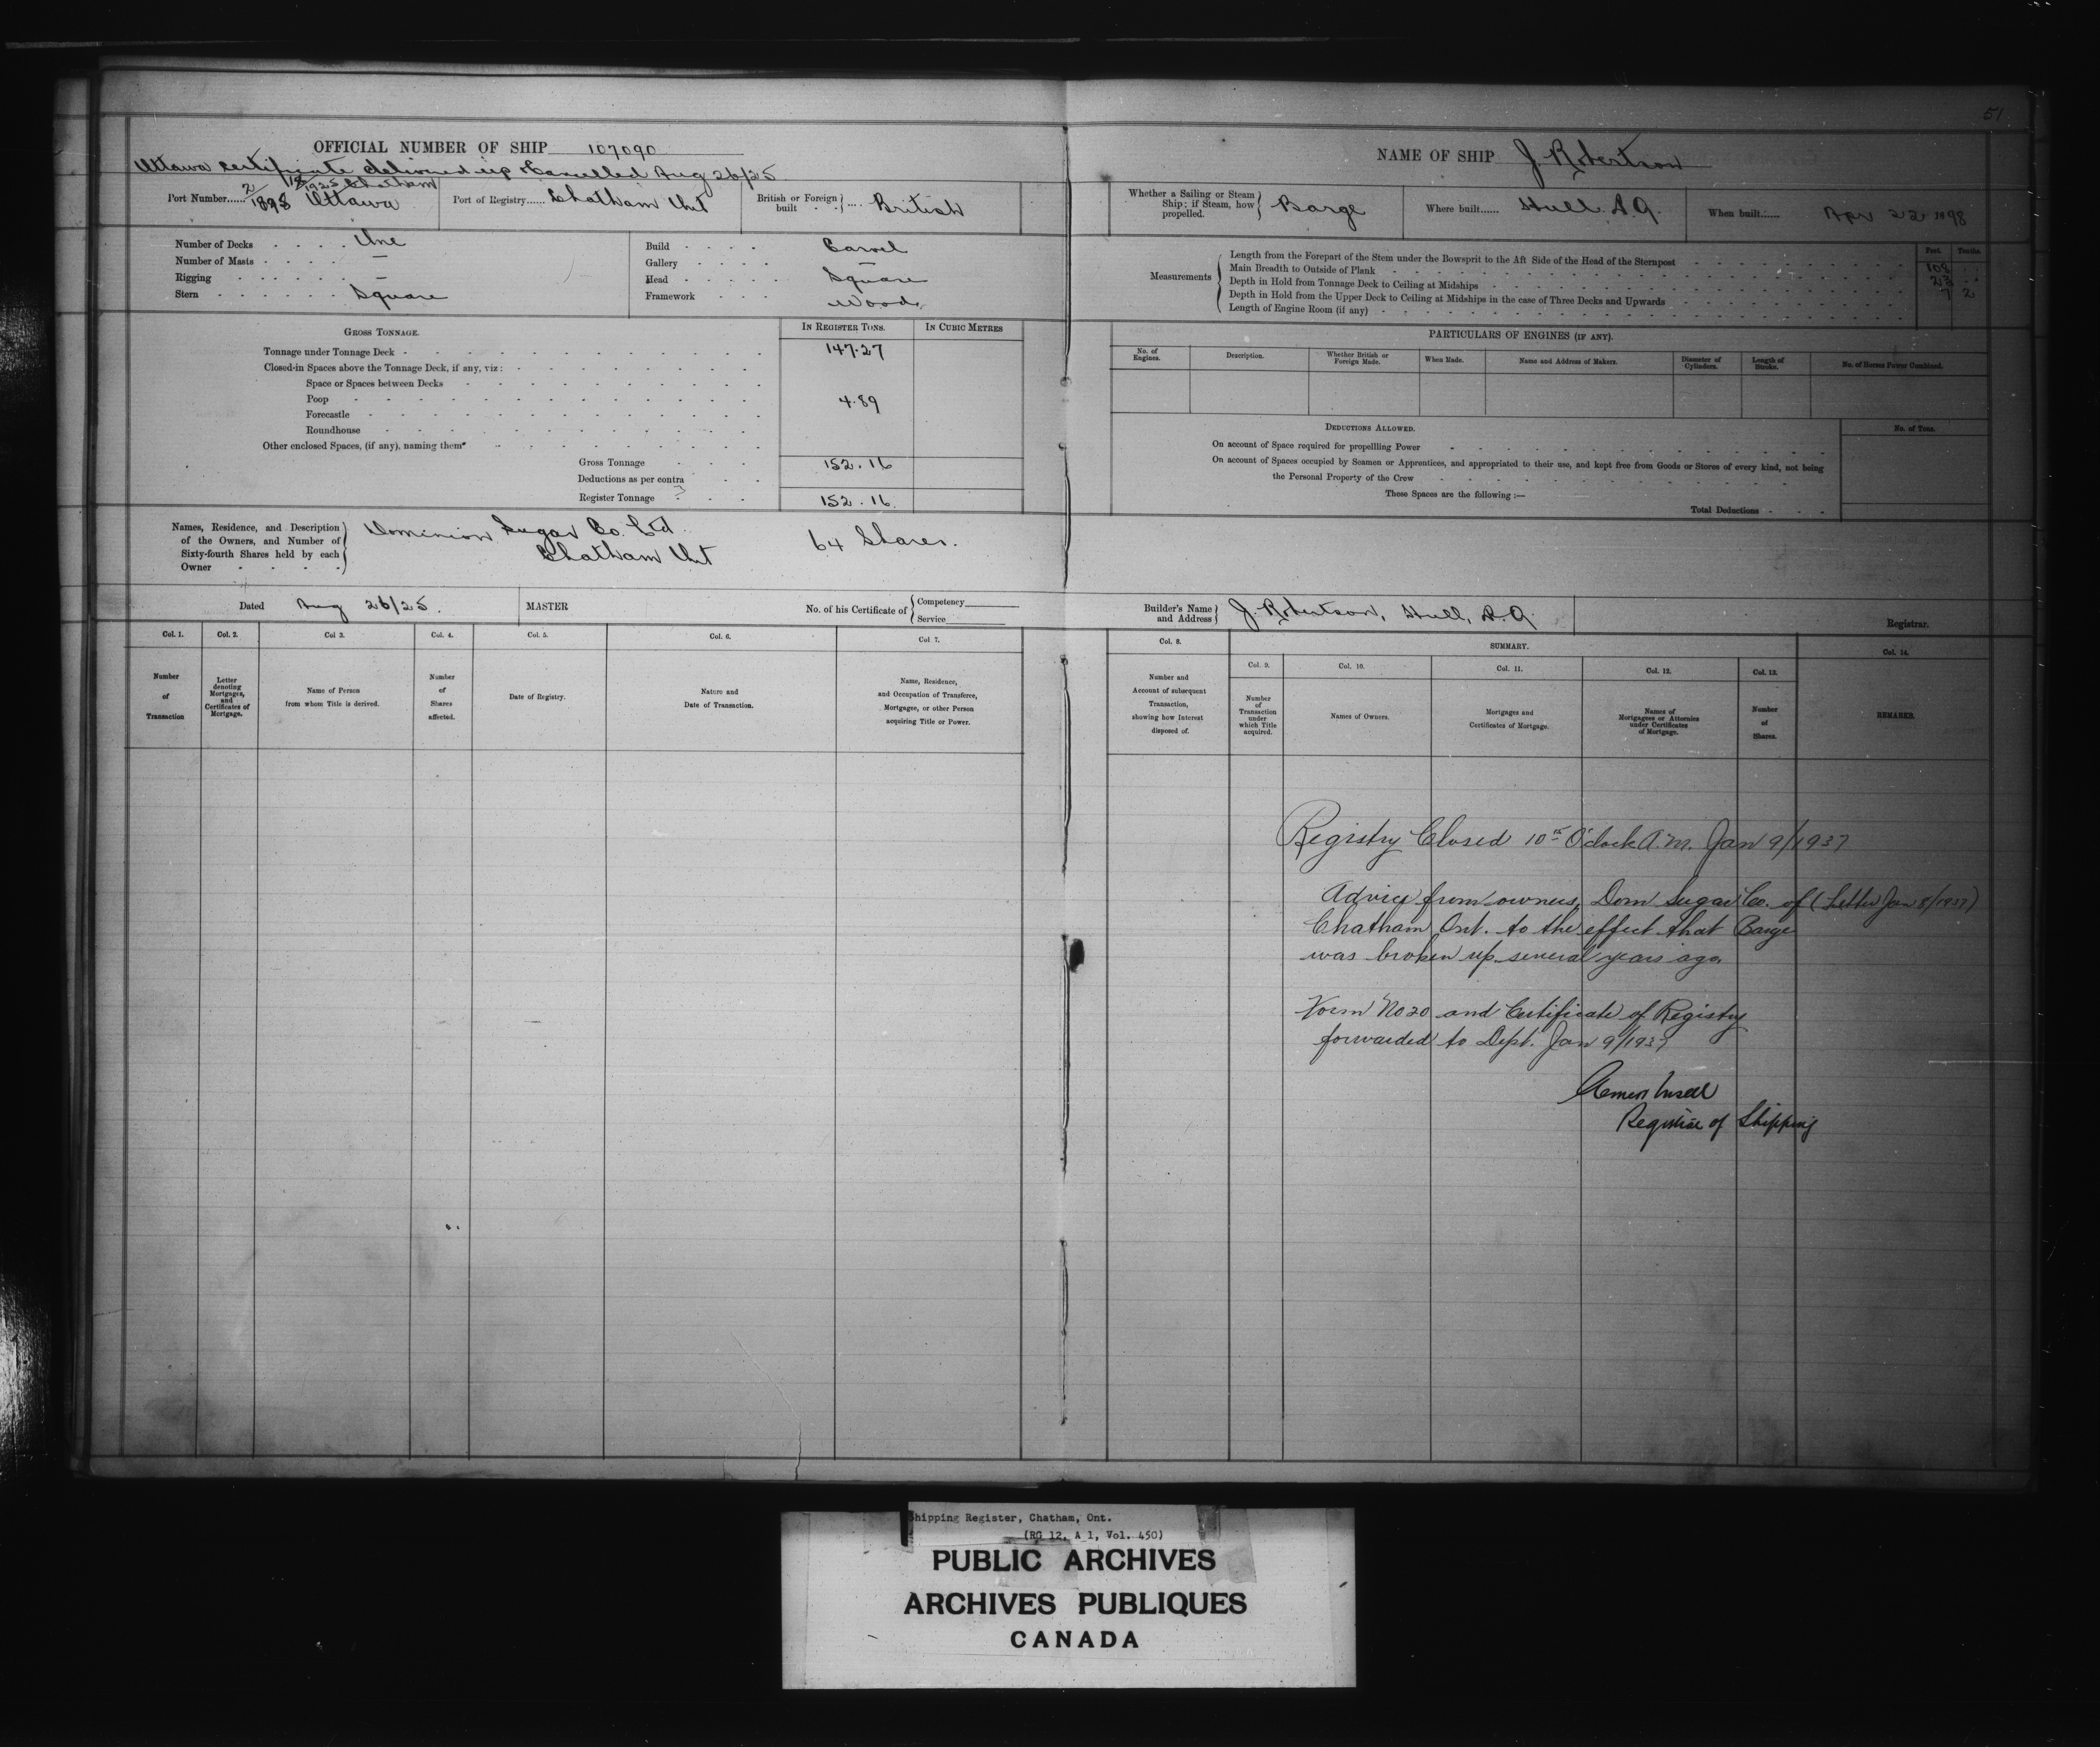 51
OFFICIAL NUMBER OF SHIP 107090
Ottawa certificate delivered up & Cancelled Aug 26/25
NAME OF SHIP J. Robertson
1925 Chatham
Port Number...... 2/1898 Ottawa
Port of Registry...... Chatham Ont
British or Foreign built .... British
Whether a Sailing or Steam Ship; if Steam, how propelled. Barge
Where built...... Hull. P.Q.
When built...... Apr 22 1898
Number of Decks One
Number of Masts —
Rigging —
Stern Square
Build Carvel
Gallery —
Head Square
Framework Wood
Measurements
Feet. Tenths.
Length from the Forepart of the Stem under the Bowsprit to the Aft Side of the Head of the Sternpost 108
Main Breadth to Outside of Plank 23
Depth in Hold from Tonnage Deck to Ceiling at Midships 7 2
Depth in Hold from the Upper Deck to Ceiling at Midships in the case of Three Decks and Upwards
Length of Engine Room (if any)
GROSS TONNAGE.
IN REGISTER TONS.
IN CUBIC METRES
Tonnage under Tonnage Deck 147.27
Closed-in Spaces above the Tonnage Deck, if any, viz:
Space or Spaces between Decks
Poop 4.89
Forecastle
Roundhouse
Other enclosed Spaces, (if any), naming them
Gross Tonnage 152.16
Deductions as per contra
Register Tonnage 152.16
PARTICULARS OF ENGINES (IF ANY).
No. of Engines.
Description.
Whether British or Foreign Made.
When Made.
Name and Address of Makers.
Diameter of Cylinders.
Length of Stroke.
No. of Horses Power Combined.
DEDUCTIONS ALLOWED.
No. of Tons.
On account of Space required for propelling Power
On account of Spaces occupied by Seamen or Apprentices, and appropriated to their use, and kept free from Goods or Stores of every kind, not being
the Personal Property of the Crew
These Spaces are the following :—
Total Deductions
Names, Residence, and Description
of the Owners, and Number of
Sixty-fourth Shares held by each
Owner
Dominion Sugar Co. Ltd.
Chatham Ont
64 Shares.
Dated Aug 26/25.
MASTER
No. of his Certificate of
Competency
Service
Builder's Name and Address J. Robertson, Hull, P.Q.
Registrar.
Col. 1.
Number of Transaction
Col. 2.
Letter denoting Mortgages, and Certificates of Mortgage.
Col 3.
Name of Person from whom Title is derived.
Col. 4.
Number of Shares affected.
Col. 5.
Date of Registry.
Col. 6.
Nature and Date of Transaction.
Col 7.
Name, Residence, and Occupation of Transferee, Mortgagee, or other Person acquiring Title or Power.
Col. 8.
Number and Account of subsequent Transaction, showing how Interest disposed of.
SUMMARY.
Col. 9.
Number of Transaction under which Title acquired.
Col. 10.
Names of Owners.
Col. 11.
Mortgages and Certificates of Mortgage.
Col. 12.
Names of Mortgagees or Attornies under Certificates of Mortgage.
Col. 13.
Number of Shares.
Col. 14.
REMARKS.
Registry Closed 10th O'clock A.M. Jan 9/1937
Advice from owners, Dom Sugar Co. of (Letter Jan 8/1937)
Chatham Ont. to the effect that Barge
was broken up several years ago.
Form No 20 and Certificate of Registry
forwarded to Dept. Jan 9/1937
Registrar of Shipping
Shipping Register, Chatham, Ont.
(RG 12, A 1, Vol. 450)
PUBLIC ARCHIVES
ARCHIVES PUBLIQUES
CANADA